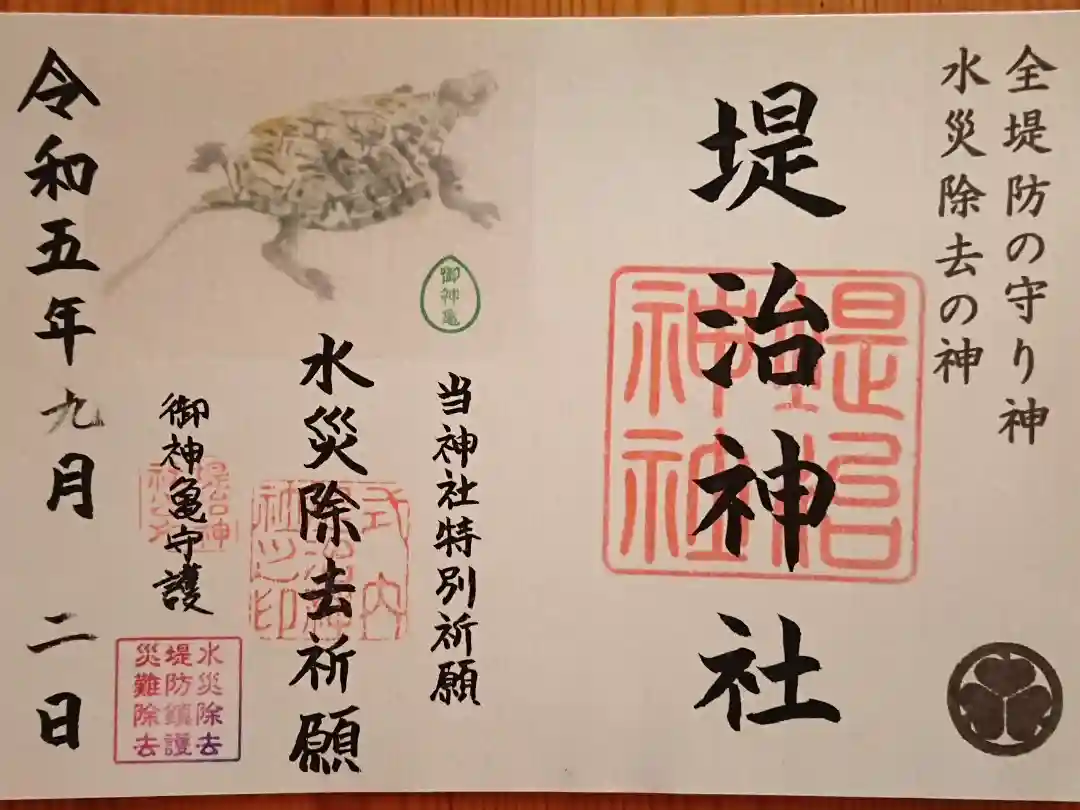 全堤防の守り神
水災除去の神
堤治神社
堤治
神社
御神亀
当神社特別祈願
水災除去祈願
式内
社之印
御神亀守護
堤治神
水災除去
堤防鎮護
災難除去
令和五年九月二日